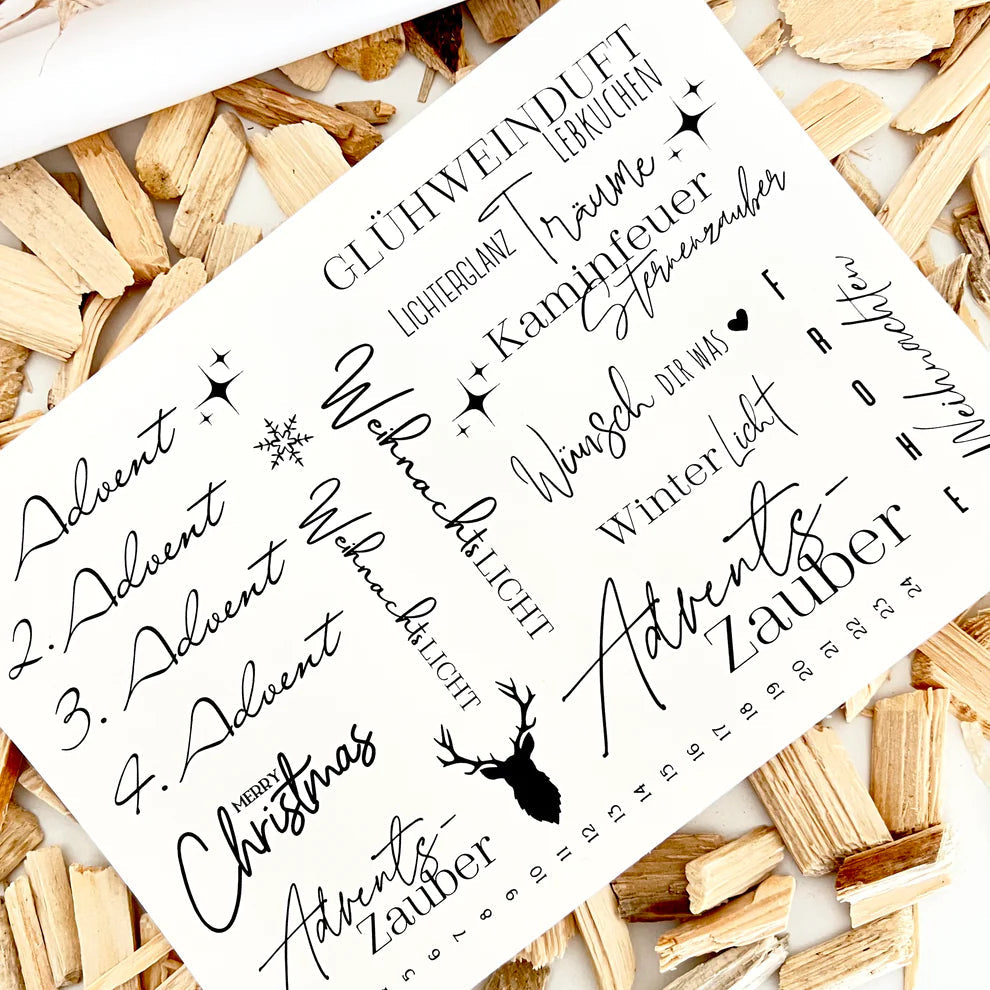 GLÜHWEINDUFT
LEBKUCHEN
LICHTERGLANZ Träume
Kaminfeuer
Sternenzauber
Wünsch DIR WAS
Winter Licht
FROHE
Weihnachten
Advents-
Zauber
WeihnachtsLICHT
WeihnachtsLICHT
Advent
2. Advent
3. Advent
4. Advent
MERRY
Christmas
Advents-
Zauber
5 6 7 8 9 10 11 12 13 14 15 16 17 18 19 20 21 22 23 24